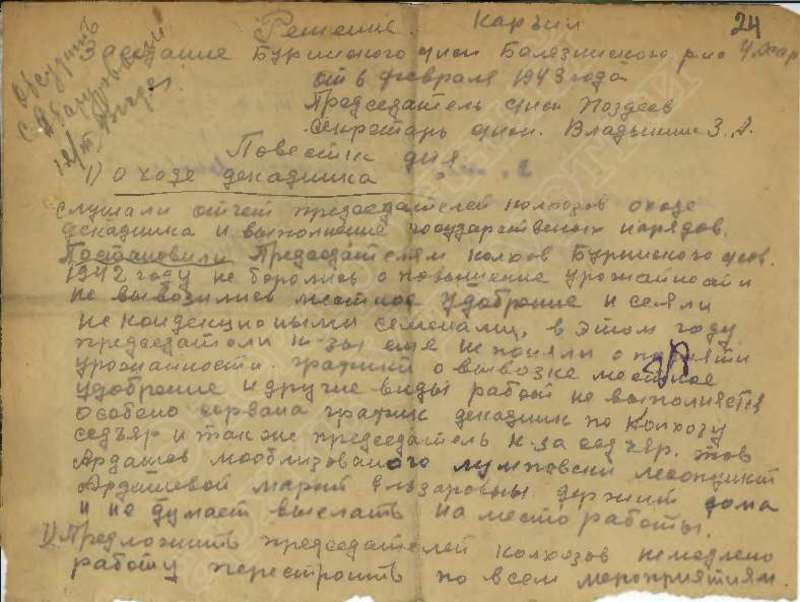 24
Решение. Каръил
Заседание Буринского с/исп Балезинского р-на Удмар
от 6 февраля 1943 года
Председатель с/исп Поздеев
Секретарь с/исп. Владыкина З. А.
Обсудить
Повестка дня
1) О ходе декадника
Слушали отчет председателей колхозов о ходе
декадника и выполнение государственных нарядов.
Постановили Председателям колхозов Буринского
1942 году не боролись о повышение урожайности
не вывозились местное удобрение и сеяли
не кондециоными семенами, в этом году
председатели к-зы еще не поняли о поднятии
урожайности. график о вывозке местное
удобрение и другие виды работ не выполняется
особено сорвана график декадник по колхозу
седъяр и так же председатель к-за седъяр. тов
Ардашев мооблизованого лумповски лесопункт
Ардашевой Марии Елизаровны держит дома
и не думает выслать на место работы.
1) Предложить председателей колхозов немедлено
работу перестроить по всем мероприятиям.